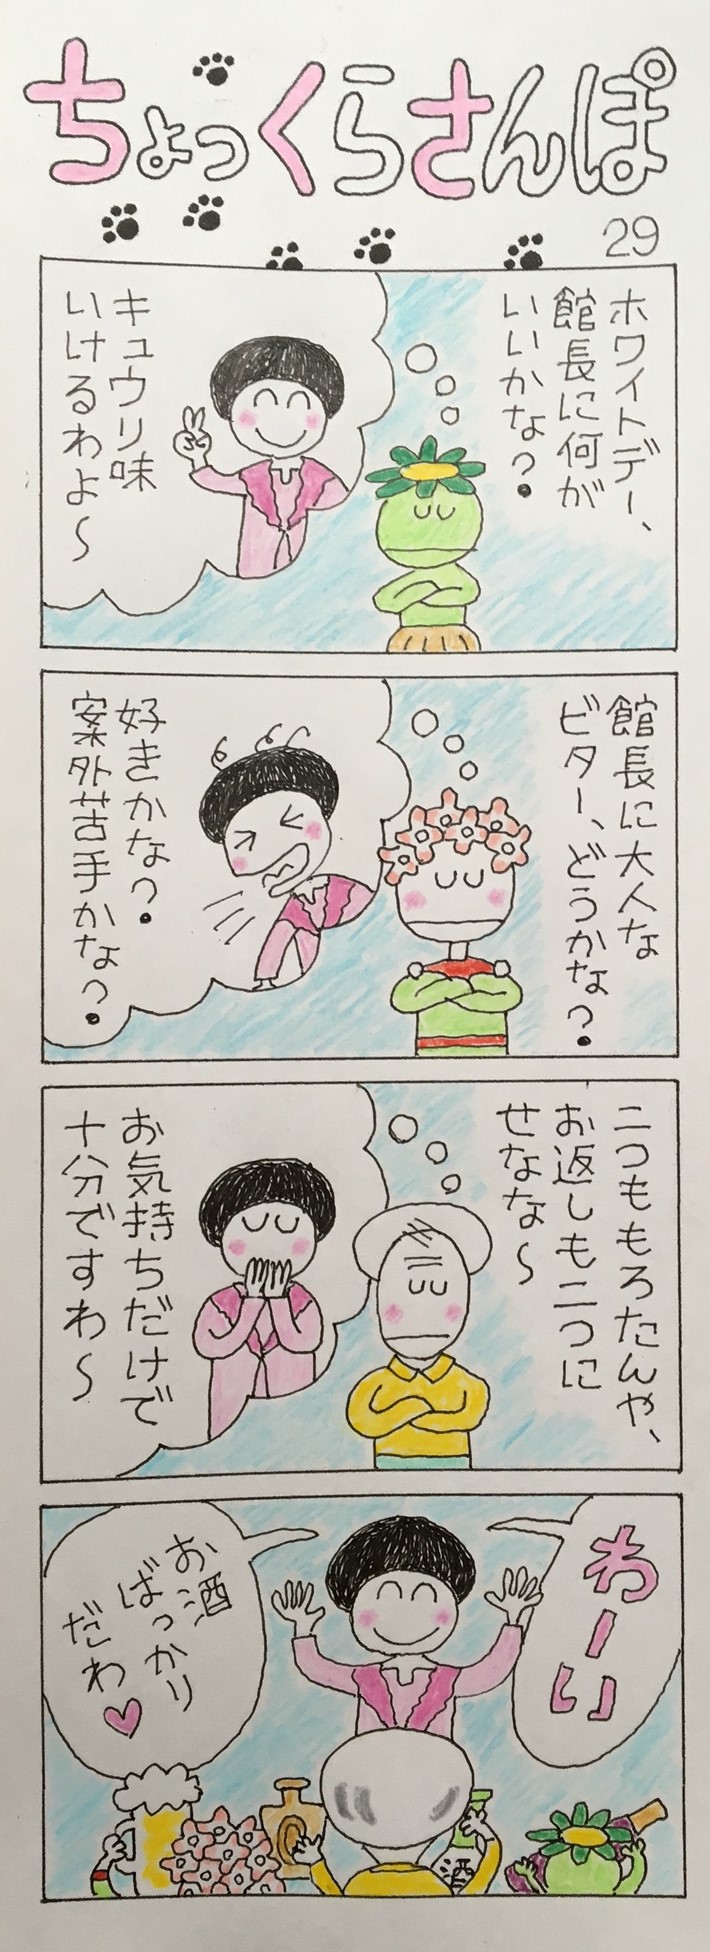 ちょっくらさんぽ
29
ホワイトデー、
館長に何が
いいかな?
キュウリ味
いけるわよ〜
館長に大人な
ビター、どうかな?
好きかな?
案外苦手かな?
二つももろたんや、
お返しも二つに
せなな〜
お気持ちだけで
十分ですわ〜
わーい
お酒
ばっかり
だわ♡
酒